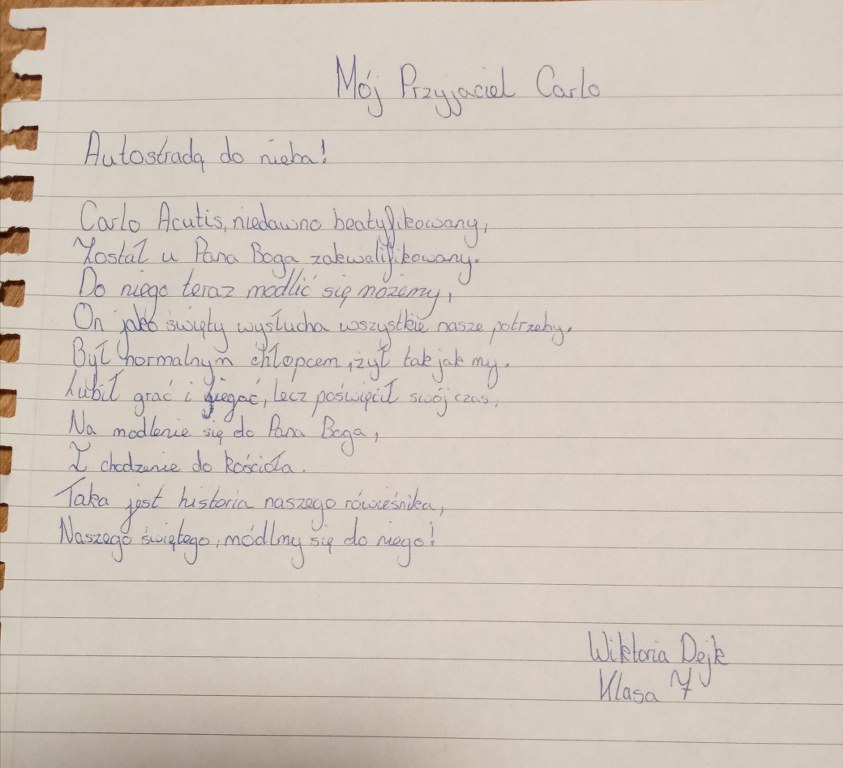 Mój Przyjaciel Carlo
Autostradą do nieba!
Carlo Acutis, niedawno beatyfikowany,
Został u Pana Boga zakwalifikowany.
Do niego teraz modlić się możemy,
On jako święty wysłucha wszystkie nasze potrzeby.
Był normalnym chłopcem, żył tak jak my.
Lubił grać i biegać, lecz poświęcił swój czas,
Na modlenie się do Pana Boga,
I chodzenie do kościoła.
Taka jest historia naszego rówieśnika,
Naszego świętego, módlmy się do niego!
Wiktoria Dejk
Klasa 7